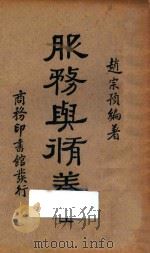 趙宗預編著
服務與脩養
商務印書館發行
mtoou.info
mtoou.info